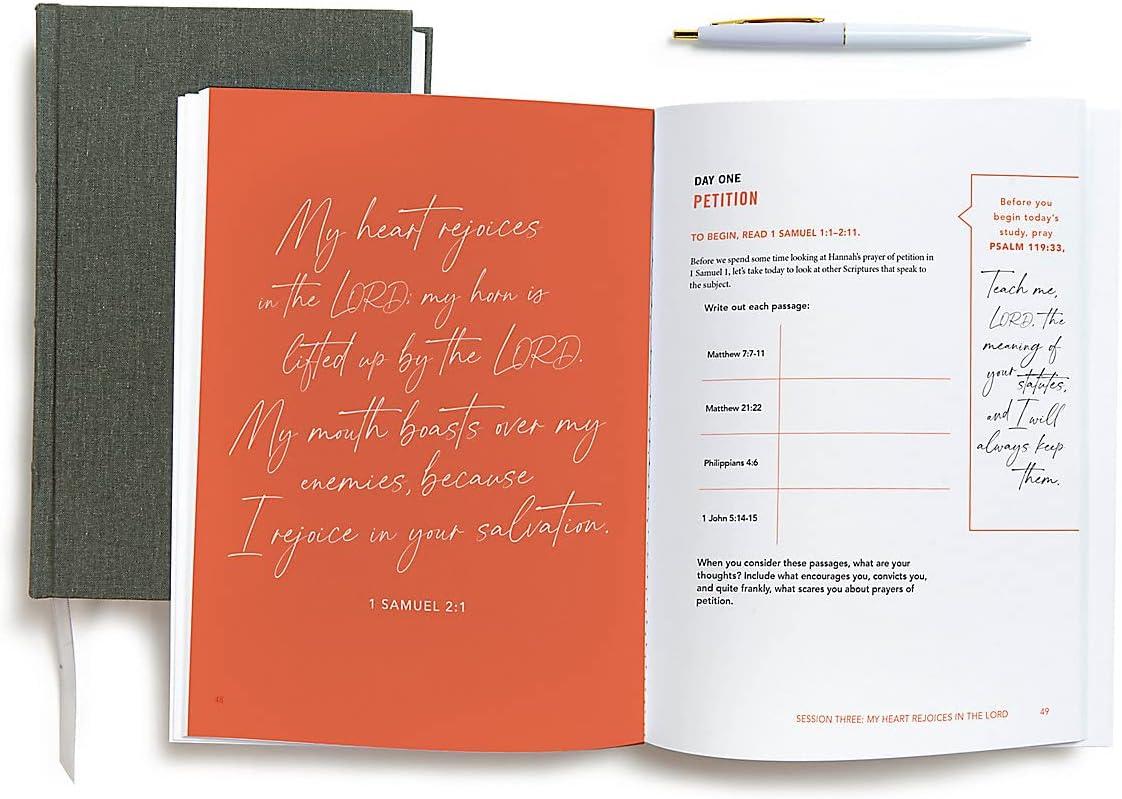 My heart rejoices
in the LORD; my horn is
lifted up by the LORD.
My mouth boasts over my
enemies, because
I rejoice in your salvation.
1 SAMUEL 2:1
48
DAY ONE
PETITION
TO BEGIN, READ 1 SAMUEL 1:1–2:11.
Before we spend some time looking at Hannah's prayer of petition in
1 Samuel 1, let's take today to look at other Scriptures that speak to
the subject.
Write out each passage:
Matthew 7:7-11
Matthew 21:22
Philippians 4:6
1 John 5:14-15
When you consider these passages, what are your
thoughts? Include what encourages you, convicts you,
and quite frankly, what scares you about prayers of
petition.
Before you
begin today's
study, pray
PSALM 119:33,
Teach me,
LORD, the
meaning of
your statutes,
and I will
always keep
them.
SESSION THREE: MY HEART REJOICES IN THE LORD
49